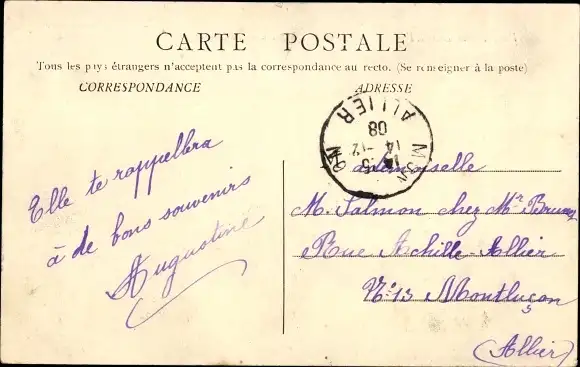 CARTE POSTALE
Tous les pays étrangers n'acceptent pas la correspondance au recto. (Se renseigner à la poste)
CORRESPONDANCE
ADRESSE
Elle te rappellera
à de bons souvenirs
Augustine
Mademoiselle
M. Salmon chez Mr
Rue Achille-Allier
No 13 Montluçon
(Allier)
ALLIER
14-12
08